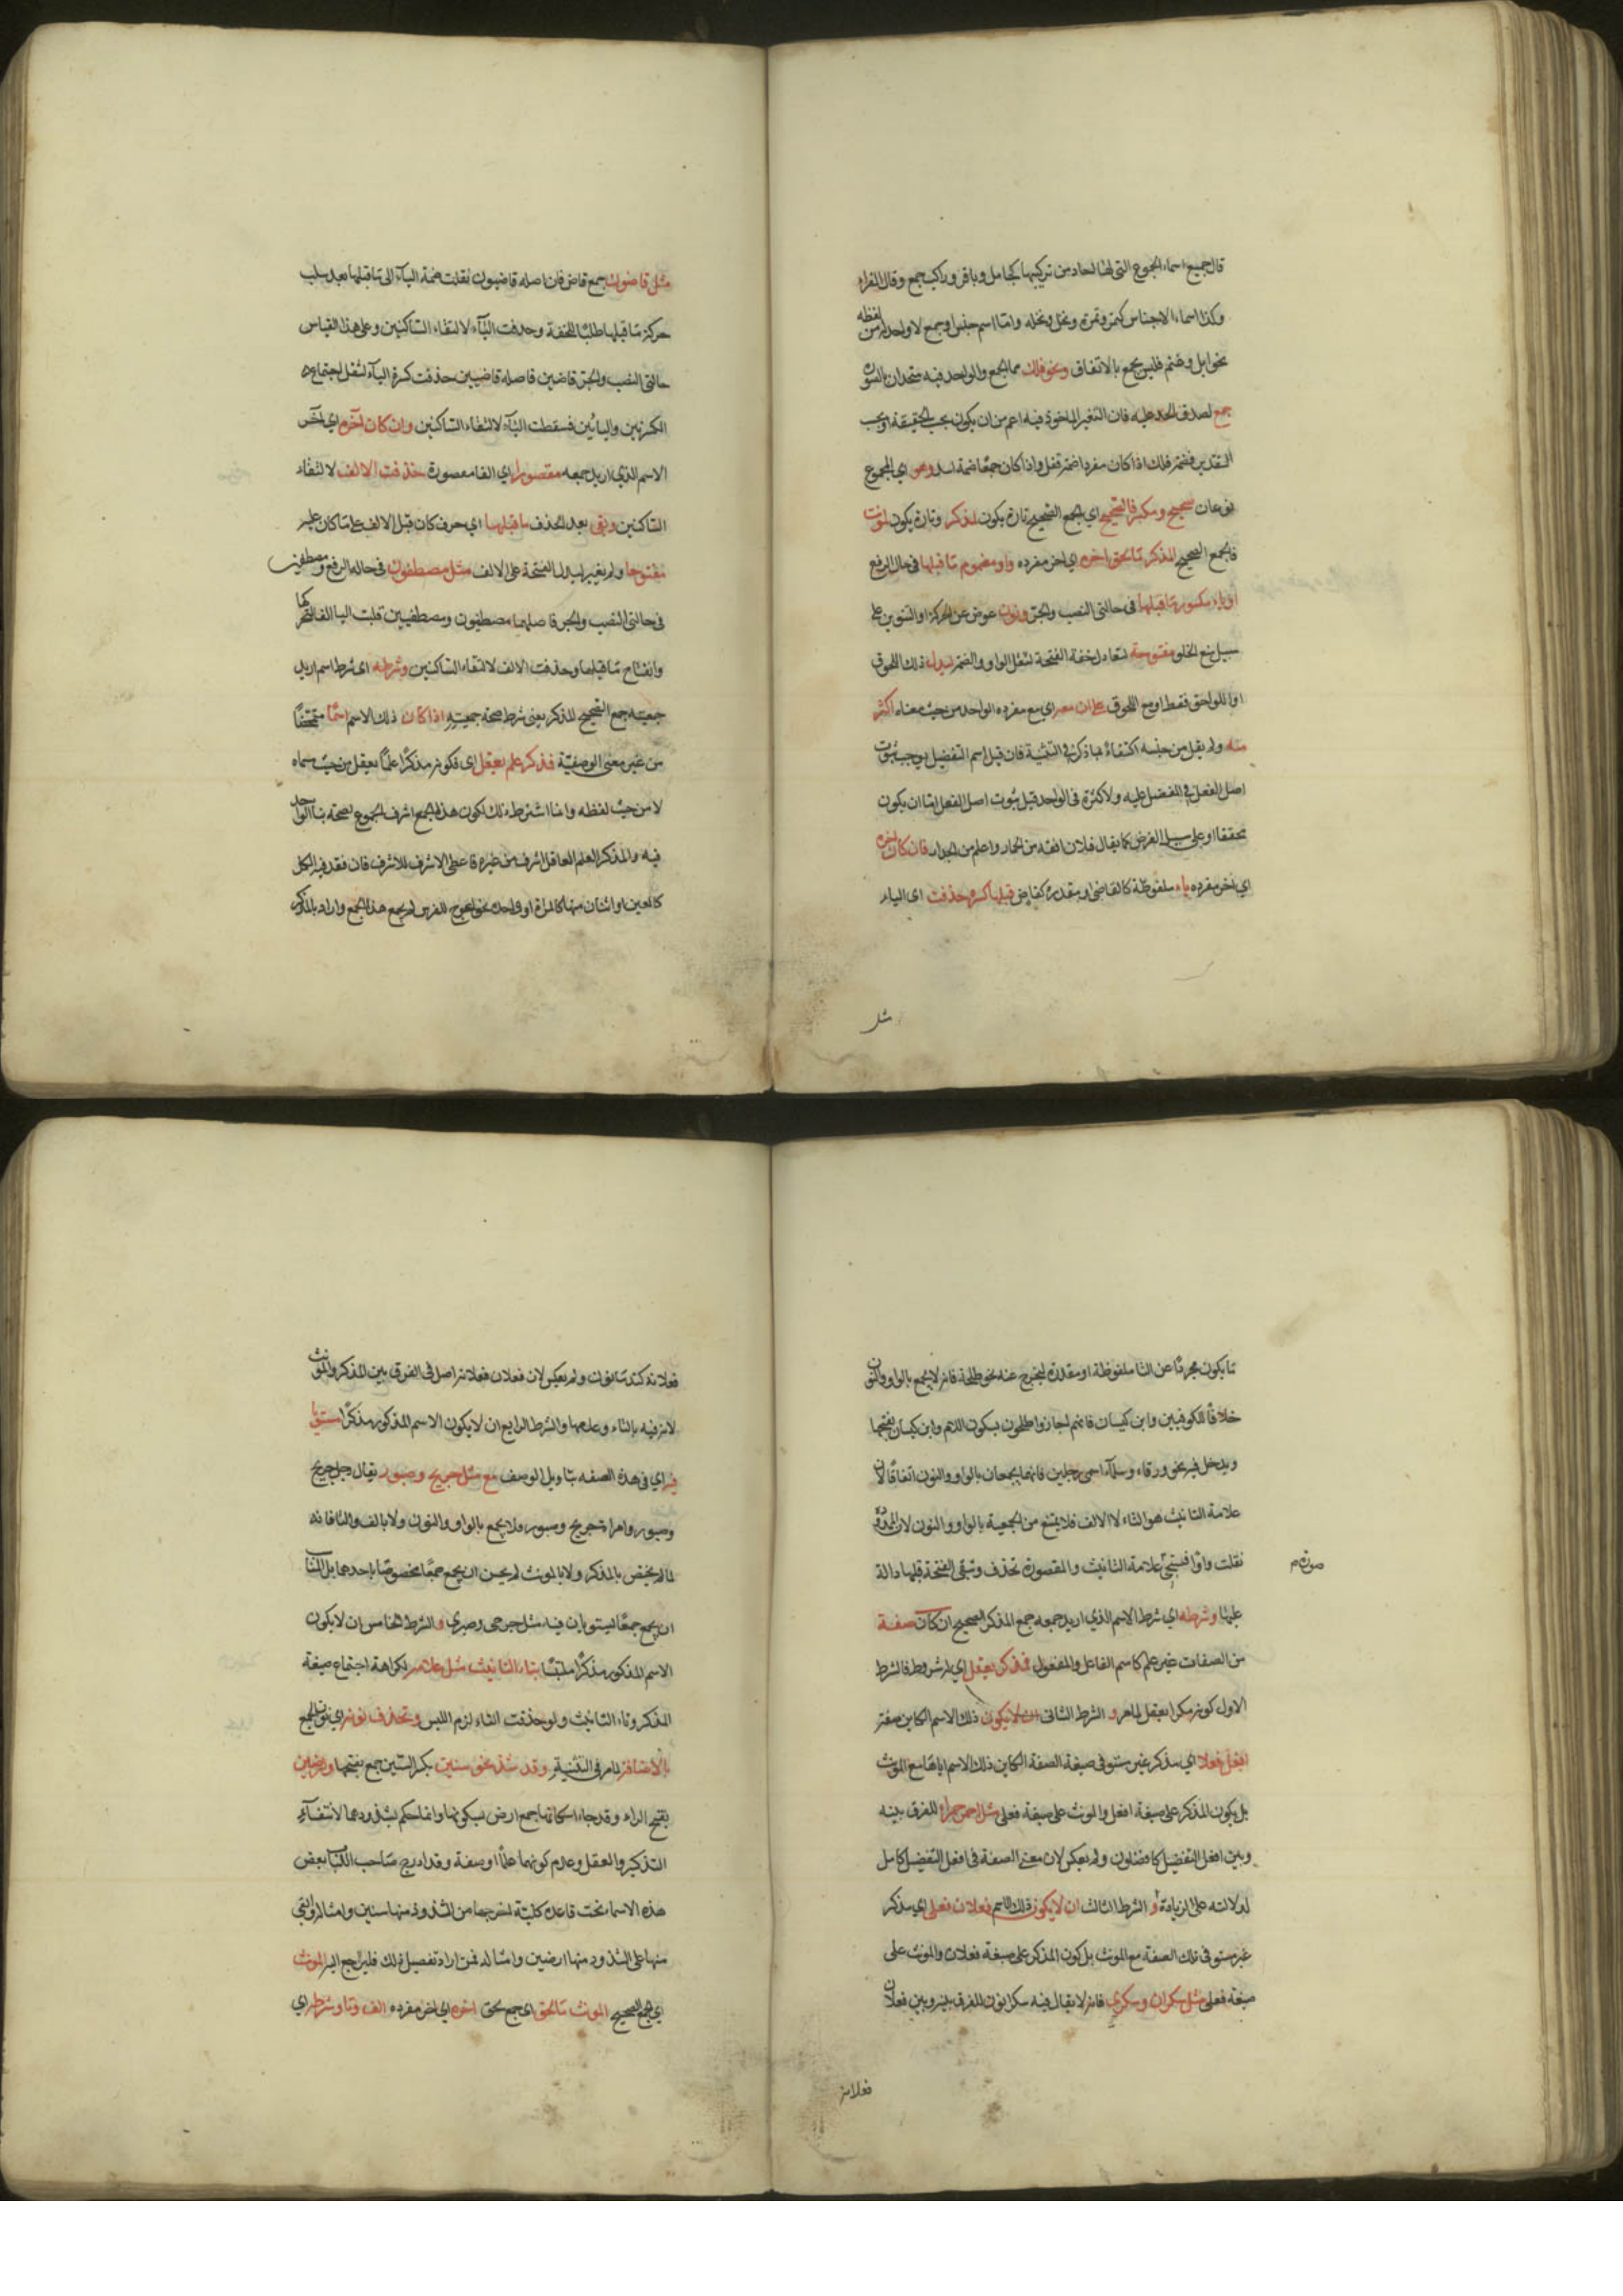 قال جميع اسماء الجموع التي لها احاد من تركيبها كجامل وباقر وراكب جمع وقال الفراء
وكذا اسماء الاجناس كتمر وتمرة ونخل ونخلة واما اسم جنس او جمع لا واحد له من لفظه
نحو ابل وغنم فليس بجمع بالاتفاق ونحو فلك مما الجمع والواحد فيه متحدان بالصورة
جمع لصدق الحد عليه فان التغير الماخوذ فيه اعم من ان يكون بحسب الحقيقة او بحسب
التقدير فضمة فلك اذا كان مفردا ضمة قفل واذا كان جمعا ضمة اسد وهو اي المجموع
نوعان صحيح ومكسر فالصحيح اي الجمع الصحيح تارة يكون لمذكر وتارة يكون لمونث
فالجمع الصحيح المذكر ما لحق اخره اي اخر مفرده واو مضموم ما قبلها في حال الرفع
او ياء مكسور ما قبلها في حالتي النصب والجر ونون عوض عن الحركة او التنوين على
سبيل منع الخلو مفتوحة لتعادل خفة الفتحة لثقل الواو والضمة ليدل ذلك اللحوق
او اللواحق فقط او مع اللحوق على ان معه اي مع مفرده الواحد من حيث معناه اكثر
منه ولم يقل من جنسه اكتفاء بما ذكر في التثنية فان قيل اسم التفضيل يوجب ثبوت
اصل الفعل في المفضل عليه ولا كثرة في الواحد قيل ثبوت اصل الفعل اما ان يكون
محققا او على سبيل الفرض كما يقال فلان افقه من الحمار واعلم من الجدار فان كان اخره
اي اخر مفرده ياء ملفوظة كالقاضي او مقدرة كقاض قبلها كسرة حذفت اي الياء
مثل
مثل قاضون جمع قاض فان اصله قاضيون نقلت ضمة الياء الى ما قبلها بعد سلب
حركة ما قبلها طلبا للخفة وحذفت الياء لالتقاء الساكنين وعلى هذا القياس
حالتي النصب والجر قاضين فاصله قاضيين حذفت كسرة الياء لثقل اجتماع
الكسرتين واليائين فسقطت الياء لالتقاء الساكنين وان كان اخره اي اخر
الاسم الذي اريد جمعه مقصورا اي الفا مقصورة حذفت الالف لالتقاء
الساكنين وبقي بعد الحذف ما قبلها اي حرف كان قبل الالف على ما كان عليه
مفتوحا ولم يغير ليدل الفتحة على الالف مثل مصطفون في حالة الرفع ومصطفين
في حالتي النصب والجر فاصلهما مصطفيون ومصطفيين قلبت اليا الفا لتحركها
وانفتاح ما قبلها وحذفت الالف لالتقاء الساكنين وشرطه اي شرط اسم اريد
جمعيته جمع الصحيح المذكر يعني شرط صحة جمعيته اذا كان ذلك الاسم اسما متمحضا
من غير معنى الوصفية فذكر علم يعقل اي فكونه مذكرا علما يعقل من حيث مسماه
لا من حيث لفظه وانما اشترط ذلك لكون هذا الجمع اشرف الجموع لصحة بناء الواحد
فيه والمذكر العلم العاقل اشرف من غيره فاعطي الاشرف للاشرف فان فقد فيه الكل
كالعين او اثنان منها كالمراة او واحد نحو اعوج للفرس لم يجمع هذا الجمع واراد بالمذكر
ما يكون مجردا عن التا ملفوظة او مقدرة ليخرج عنه نحو طلحة فانه لا يجمع بالواو والنون
خلافا للكوفيين وابن كيسان فانهم اجازوا طلحون بسكون اللام وابن كيسان بفتحها
ويدخل فيه نحو ورقاء وسلمى اسمي رجلين فانهما يجمعان بالواو والنون اتفاقا لان
علامة التانيث هو التاء لا الالف فلا يمنع من الجمعية بالواو والنون لان الممدودة
نقلت واوا علامة التانيث والمقصورة تحذف وتبقى الفتحة قبلها دالة
عليها وشرطه اي شرط الاسم الذي اريد جمعه جمع المذكر الصحيح ان كان صفة
من الصفات غير علم كاسم الفاعل والمفعول فمذكر يعقل اي له شروط فالشرط
الاول كونه مذكرا يعقل لما مر والشرط الثاني ان لا يكون ذلك الاسم الكاين صفة
افعل فعلا اي مذكر غير مستو في صيغة الصفة الكاين ذلك الاسم اياها مع المونث
بل يكون المذكر على صيغة افعل والمونث على صيغة فعلى مثل احمر حمراء للفرق بينه
وبين افعل التفضيل كافضلون ولم يعكس لان معنى الصفة في افعل التفضيل كامل
لدلالته على الزيادة و الشرط الثالث ان لا يكون ذلك الاسم فعلان فعلى اي مذكر
غير مستو في تلك الصفة مع المونث بل يكون المذكر على صيغة فعلان والمونث على
صيغة فعلى مثل سكران وسكرى فانه لا يقال فيه سكرانون للفرق بينه وبين فعلان
فعلانة
فعلانة كندمانون ولم يعكس لان فعلان فعلانة اصل في الفرق بين المذكر والمونث
لانه فيه بالتاء وعدمها والشرط الرابع ان لا يكون الاسم المذكور مذكرا مستويا
فيه اي في هذه الصفة بتاويل الوصف مع مثل جريح وصبور يقال رجل جريح
وصبور وامراة جريح وصبور فلا يجمع بالواو والنون ولا بالف والتا فانه
لما لم يختص بالمذكر ولا بالمونث لم يحسن ان يجمع جمعا مخصوصا باحدهما بل المناسب
ان يجمع جمعا يستويان فيه مثل جرحى وصبر و الشرط الخامس ان لا يكون
الاسم المذكور مذكرا ملتبسا بتاء التانيث مثل علامة لكراهة اجتماع صيغة
المذكر وتاء التانيث ولو حذفت التاء لزم اللبس وتحذف نونه اي نون الجمع
بالاضافة لما مر في التثنية وقد شذ نحو سنين بكسر السين جمع بفتحها وارضين
بفتح الراء وقد جاء اسكانها جمع ارض بسكونها وانما حكم بشذوذهما لانتفاء
التذكير والعقل وعدم كونهما علما او صفة وقد ادرج صاحب بعض
هذه الاسماء تحت قاعدة كلية اخرجها من الشذوذ منها سنين وامثاله وابقى
منها على الشذوذ منها ارضين وامثاله فمن اراد تفصيل ذلك فليرجع اليه المونث
اي الجمع الصحيح المونث ما لحق اي جمع لحق اخره اي اخر مفرده الف وتا وشرطه اي